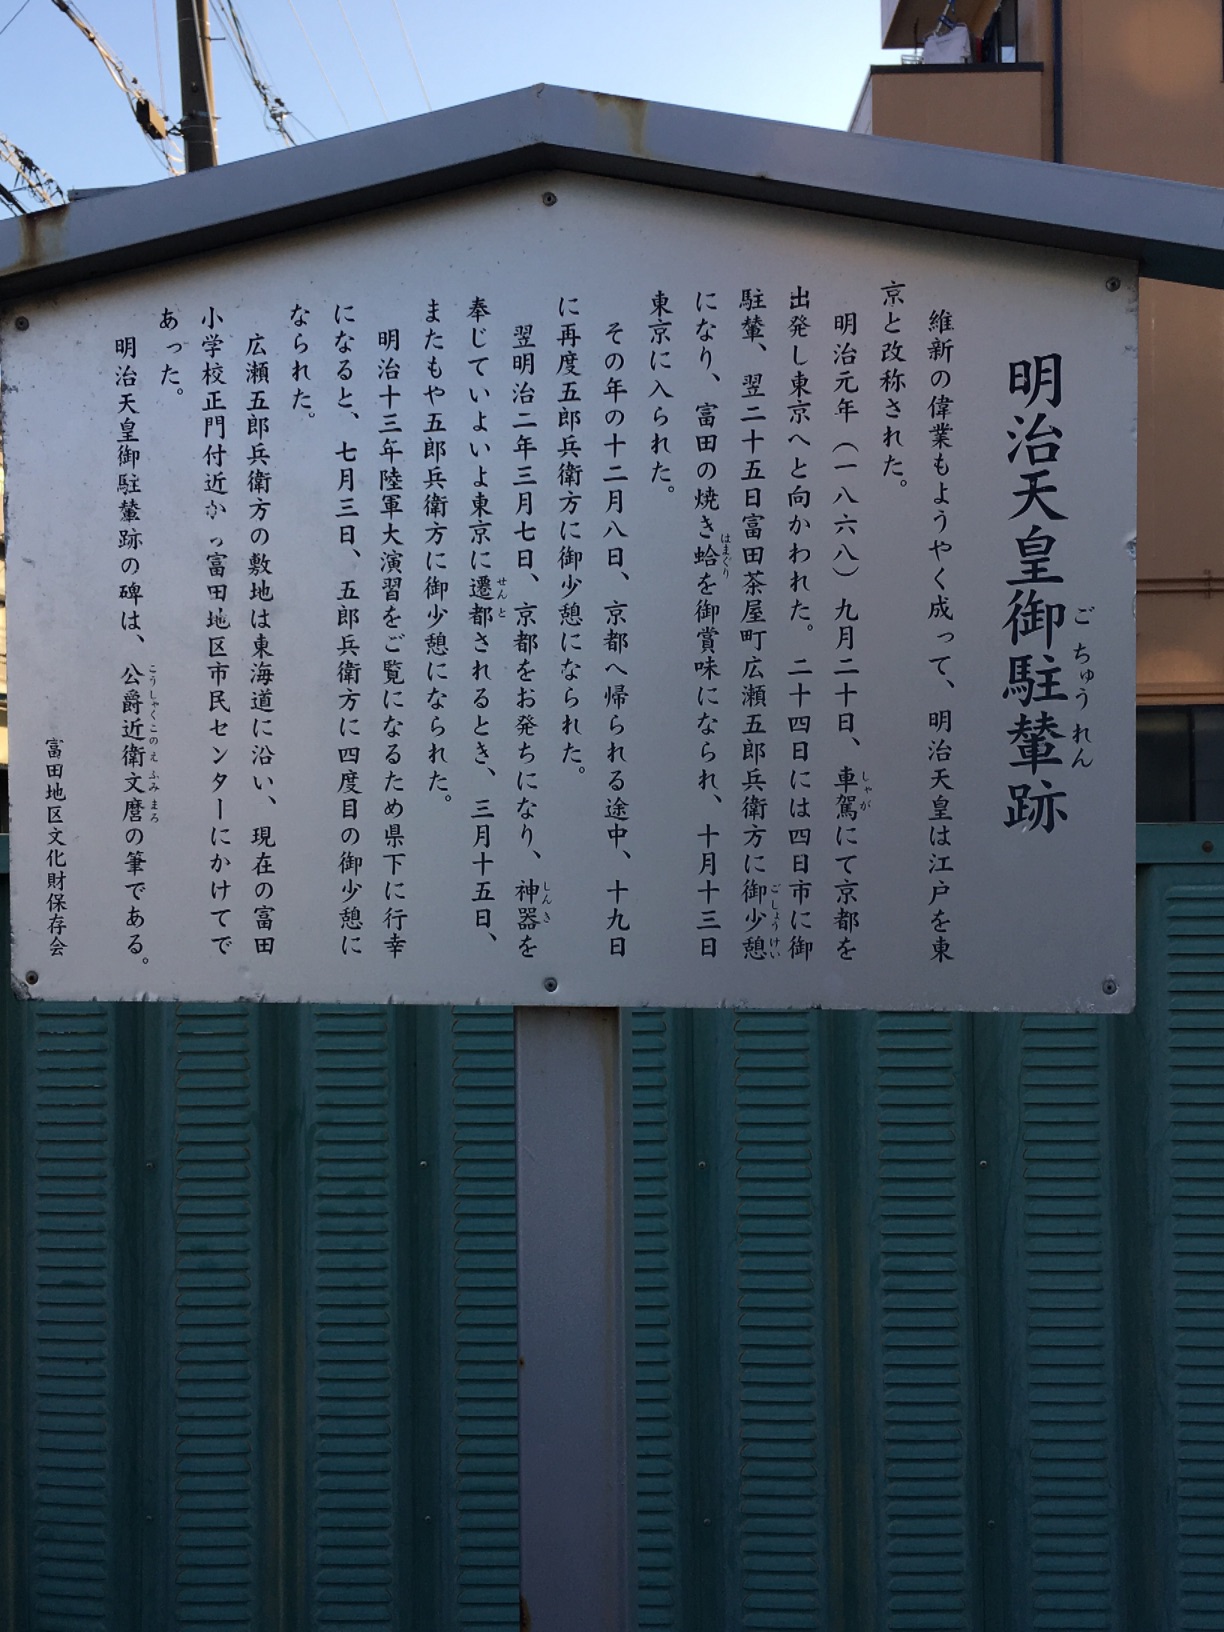 明治天皇御駐輦跡
ごちゅうれん
維新の偉業もようやく成って、明治天皇は江戸を東
京と改称された。
明治元年（一八六八）九月二十日、車駕にて京都を
しゃが
出発し東京へと向かわれた。二十四日には四日市に御
駐輦、翌二十五日富田茶屋町広瀬五郎兵衛方に御少憩
ごしょうけい
になり、富田の焼き蛤を御賞味になられ、十月十三日
はまぐり
東京に入られた。
その年の十二月八日、京都へ帰られる途中、十九日
に再度五郎兵衛方に御少憩になられた。
翌明治二年三月七日、京都をお発ちになり、神器を
しんき
奉じていよいよ東京に遷都されるとき、三月十五日、
せんと
またもや五郎兵衛方に御少憩になられた。
明治十三年陸軍大演習をご覧になるため県下に行幸
になると、七月三日、五郎兵衛方に四度目の御少憩に
なられた。
広瀬五郎兵衛方の敷地は東海道に沿い、現在の富田
小学校正門付近から富田地区市民センターにかけてで
あった。
明治天皇御駐輦跡の碑は、公爵近衛文麿の筆である。
こうしゃくこのえふみまろ
富田地区文化財保存会